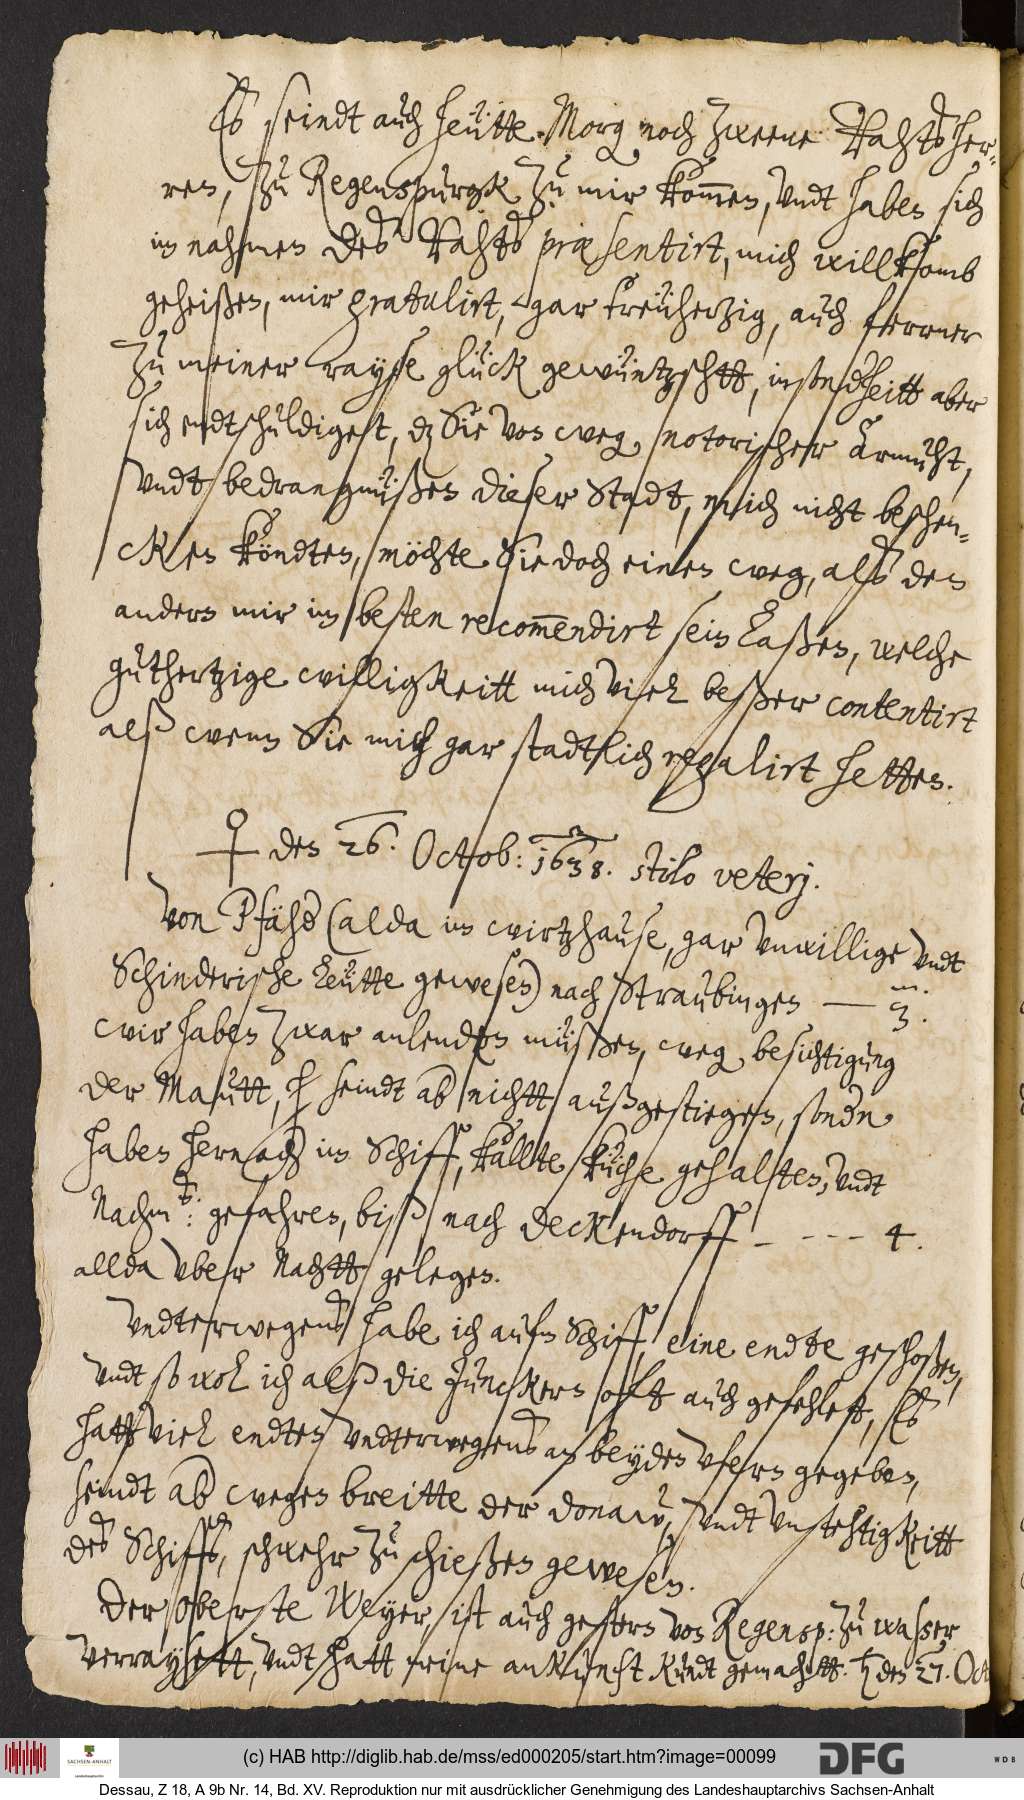 Es seindt auch heütte Morg noch zweene Rahtsher-
ren, zu Regenspurgk zu mir kom̅en, undt haben sich
im nahmen des Rahts præsentirt, mich willkomb
geheißen, mir gratulirt, gar treüherzig, auch ferrner
zu meiner rayse glück gewüntzschtt, insondheitt aber
sich endtschuldiget, dz Sie von weg notorischer Armuht,
undt bedrangnüßen dieser Stadt, mich nicht beschen-
cken köndten, möchte Sie doch einen weg, alß den
andern mir im besten recom̅endirt sein laßen, welche
guthertzige willigkeitt mich viel beßer contentirt
alß wenn Sie mich gar stadtlich regalirt hetten.
♀ den 26. Octob: 1638. stilo veterj.
Von Pfähd (alda im wirtzhause, gar unwillige undt
Schinderische Leütte gewesen) nach Straubingen — 3.
wir haben zwar anlenden müßen, weg besichtigung
der Mautt, seindt ab nichtt außgestiegen, sondn
haben hernach im Schiff, kallte küche gehalten, undt
Nachm: gefahren, biß nach Deckendorff – - - - 4.
allda uber Nachtt gelegen.
Undterwegens habe ich aufm Schiff, eine endte geschoßen,
undt so wol ich alß die Junckern oft auch gefehlet, Es
hatt viel endten undterwegens an beyden ufern gegeben,
seindt ab wegen breitte der donaw, undt unstehtigkeitt
des Schiffs, schwehr zu schießen gewesen.
Der Oberste Weyer, ist auch gestern von Regensp: zu waßer
verraysett, undt hatt meine ankunft kundt gemachtt. ♄ den 27. Oct
(c) HAB http://diglib.hab.de/mss/ed000205/start.htm?image=00099
SACHSEN-ANHALT
DFG
WDB
Dessau, Z 18, A 9b Nr. 14, Bd. XV. Reproduktion nur mit ausdrücklicher Genehmigung des Landeshauptarchivs Sachsen-Anhalt